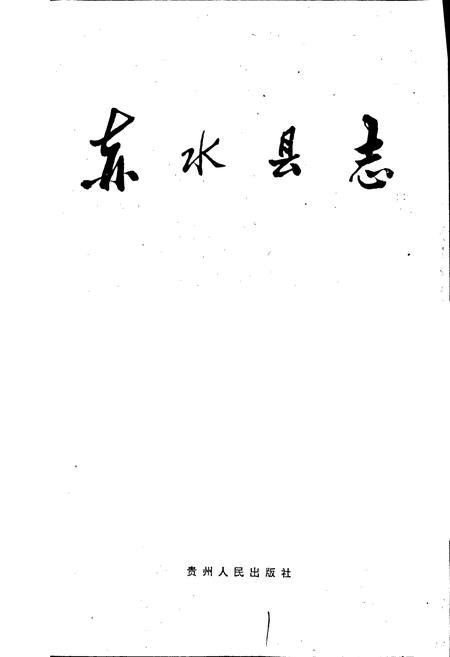 赤水县志
贵州人民出版社